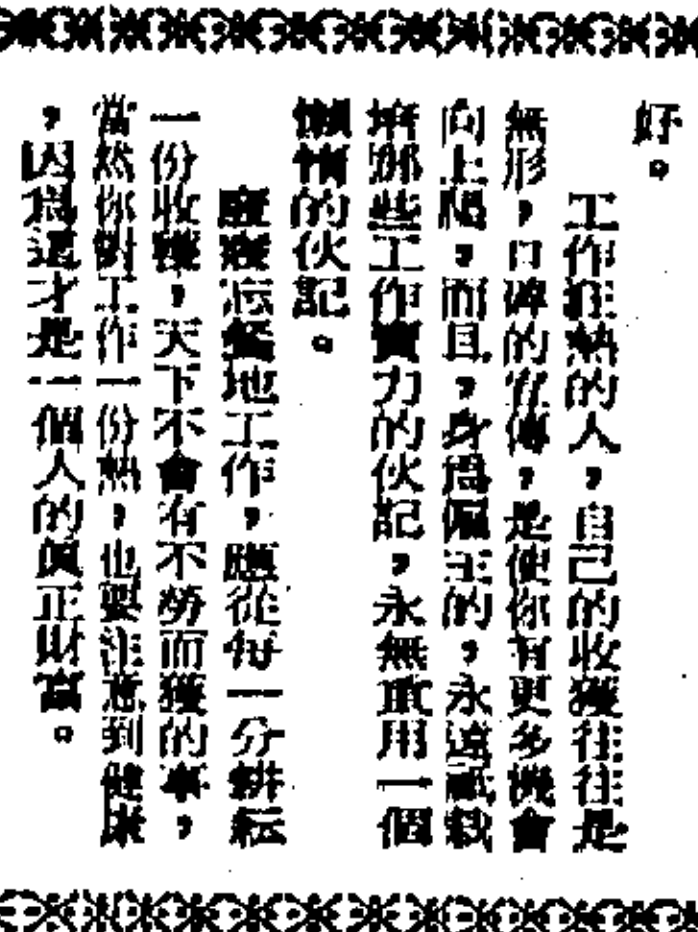 好。
工作狂熱的人，自己的收獲往往是
無形，口碑的宣傳，是使你有更多機會
向上爬，而且，身爲僱主的，永遠祗栽
培那些工作賣力的伙記，永無重用一個
懶惰的伙記。
廢寢忘餐地工作，應從每一分耕耘
一份收穫，天下不會有不勞而獲的事，
當然你對工作一份熱，也要注意到健康
，因爲這才是一個人的眞正財富。